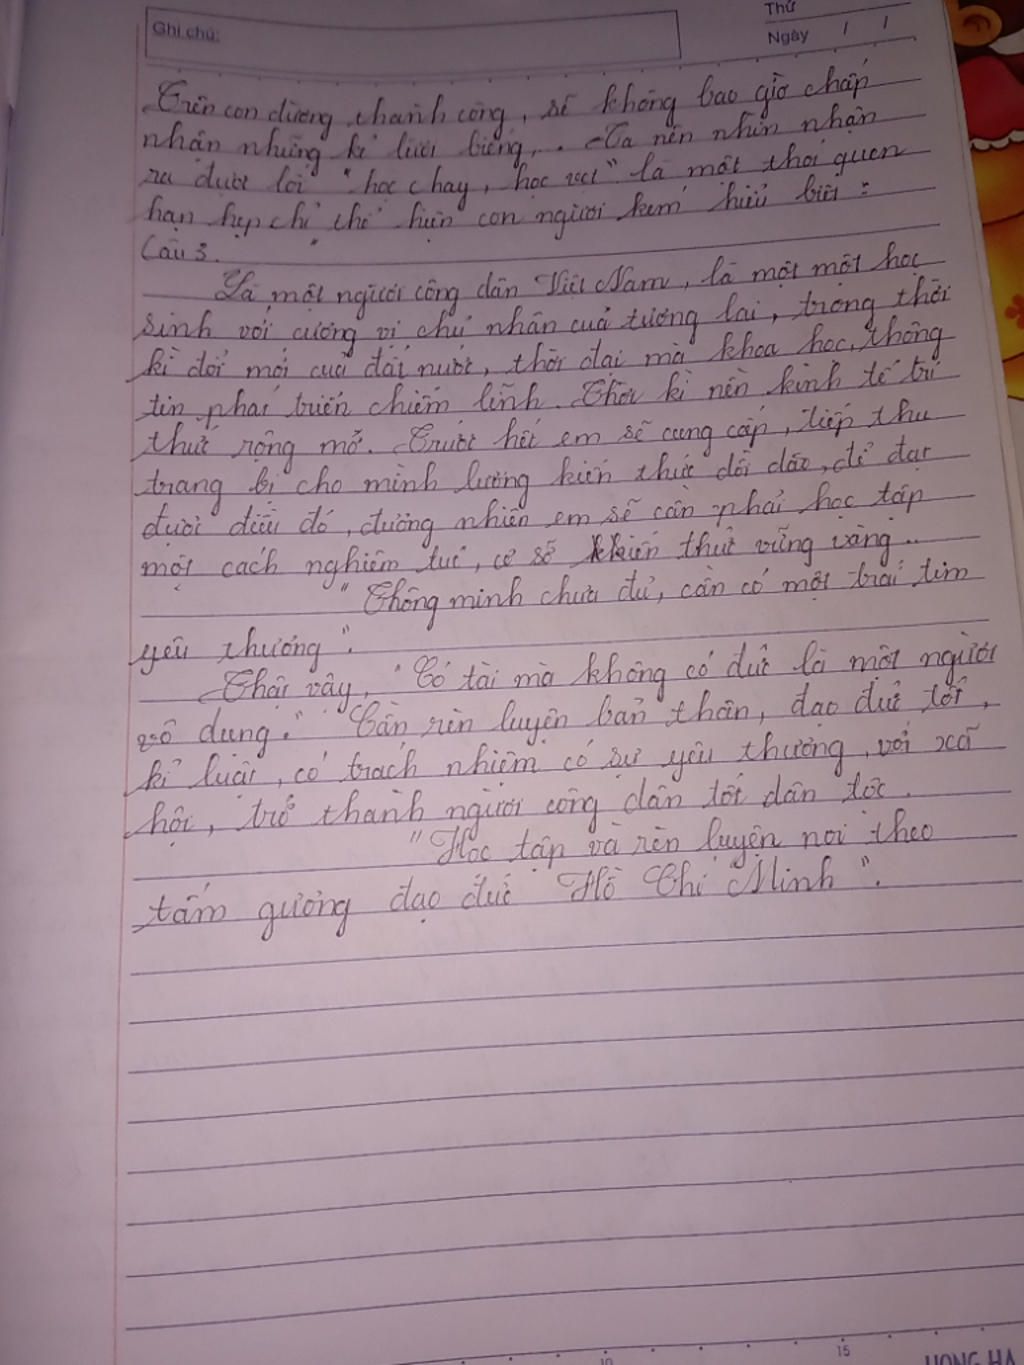 Ghi chú:
Thứ
Ngày / /
Trên con đường thành công, sẽ không bao giờ chấp
nhận những kẻ lười biếng,.. Ta nên nhìn nhận
ra được lối "học chay, học vẹt" là một thói quen
hạn hẹp chỉ thể hiện con người kém hiểu biết
Câu 3.
Là một người công dân Việt Nam, là một một học
sinh với cương vị chủ nhân của tương lai, trong thời
kì đổi mới của đất nước, thời đại mà khoa học, thông
tin phát triển chiếm lĩnh. Thời kì nền kinh tế tri
thức rộng mở. Trước hết em sẽ cung cấp, tiếp thu
trang bị cho mình lượng kiến thức dồi dào, để đạt
được điều đó, đương nhiên em sẽ cần phải học tập
một cách nghiêm túc, cơ sở kiến thức vững vàng..
"Thông minh chưa đủ, cần có một trái tim
yêu thương".
Thật vậy, "Có tài mà không có đức là một người
vô dụng." Cần rèn luyện bản thân, đạo đức tốt,
kỉ luật, có trách nhiệm có sự yêu thương với xã
hội, trở thành người công dân tốt dân tộc.
"Học tập và rèn luyện noi theo
tấm gương đạo đức Hồ Chí Minh".
10
15
HONG HA